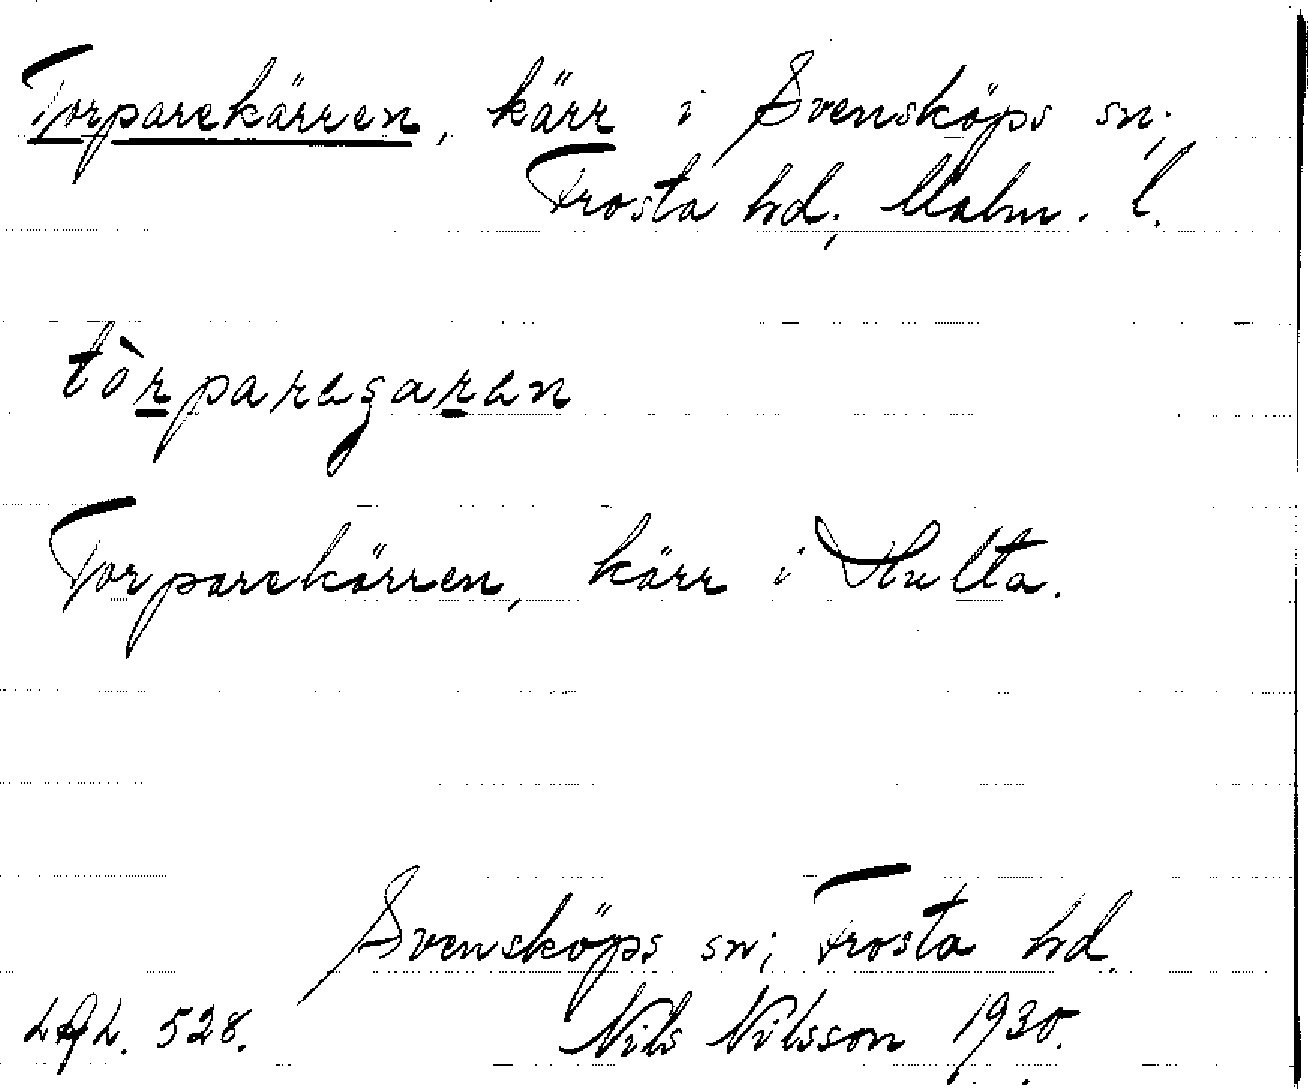 Torparekärren, kärr i Svensköps sn;
Frosta hd; Malm. l.
tòrparagaren
Torparekärren, kärr i Hulta.
Svensköps sn; Frosta hd.
528. Nils Nilsson 1930.